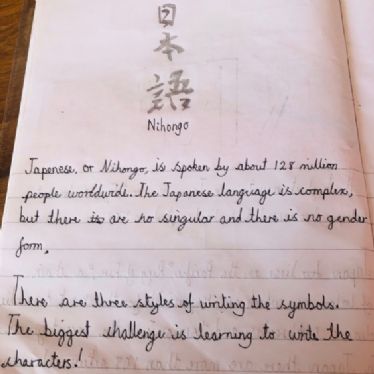 日
本
語
Nihongo
Japenese, or Nihongo, is spoken by about 128 million
people worldwide. The Japanese language is complex,
but there is are no singular and there is no gender
form.
There are three styles of writing the symbols.
The biggest challenge is learning to write the
characters!